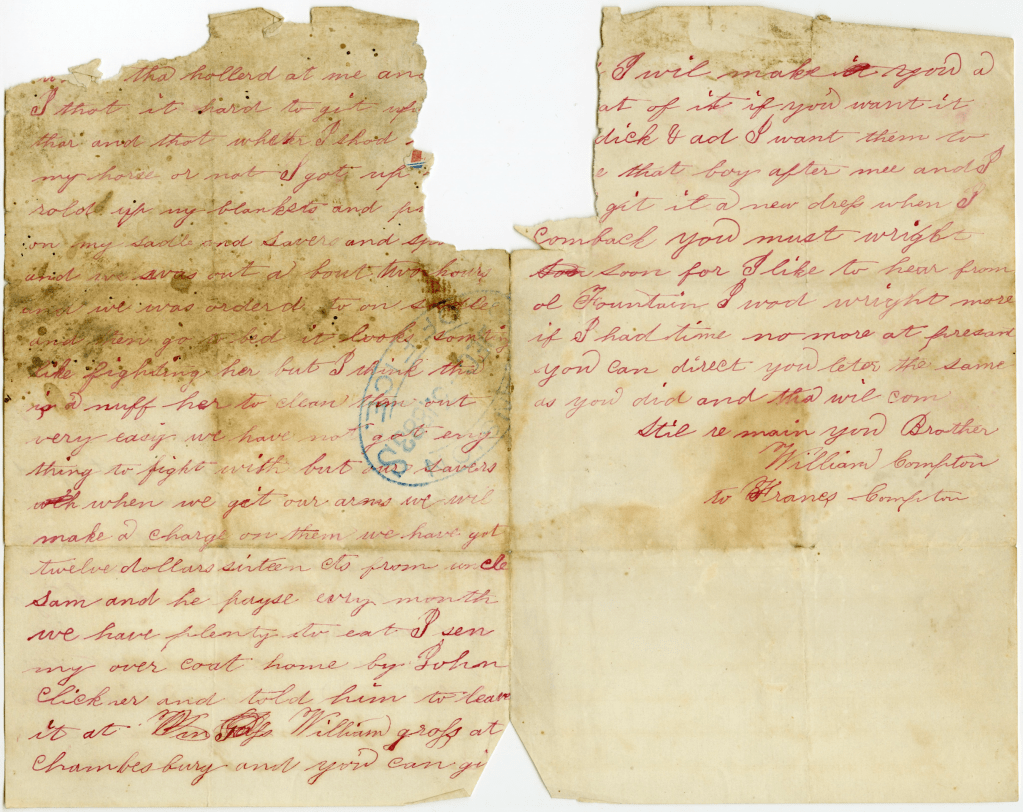 tha hollerd at me an
I that it hard to git up
thar and that wheter I shod
my horse or not I got up
rold up my blankets and p
on my sadle and savers and
and we was out a bout two hours
and we was orderd to on sadle
and then go to bed it looks somt
like fighting her but I think tha
is a nuff her to clean them out
very easy we have not got eny
thing to fight with but our savers
when we get our arms we wil
make a charge on them we have got
twelve dollars sixteen cts from uncle
Sam and he payse evry month
we have plenty to eat I sen
my over coat home by John
Clickner and told him to leav
it at William gross at
Chambesburg and you can gi
I wil make it you a
at of it if you want it
dick & ad I want them to
e that boy after mee and I
git it a new dress when I
comback you must wright
soon for I like to hear from
ol Fountain I wod wright more
if I had time no more at presant
you can direct you leter the same
as you did and tha wil com
Stil re main you Brother
William Compton
to Frances Compton